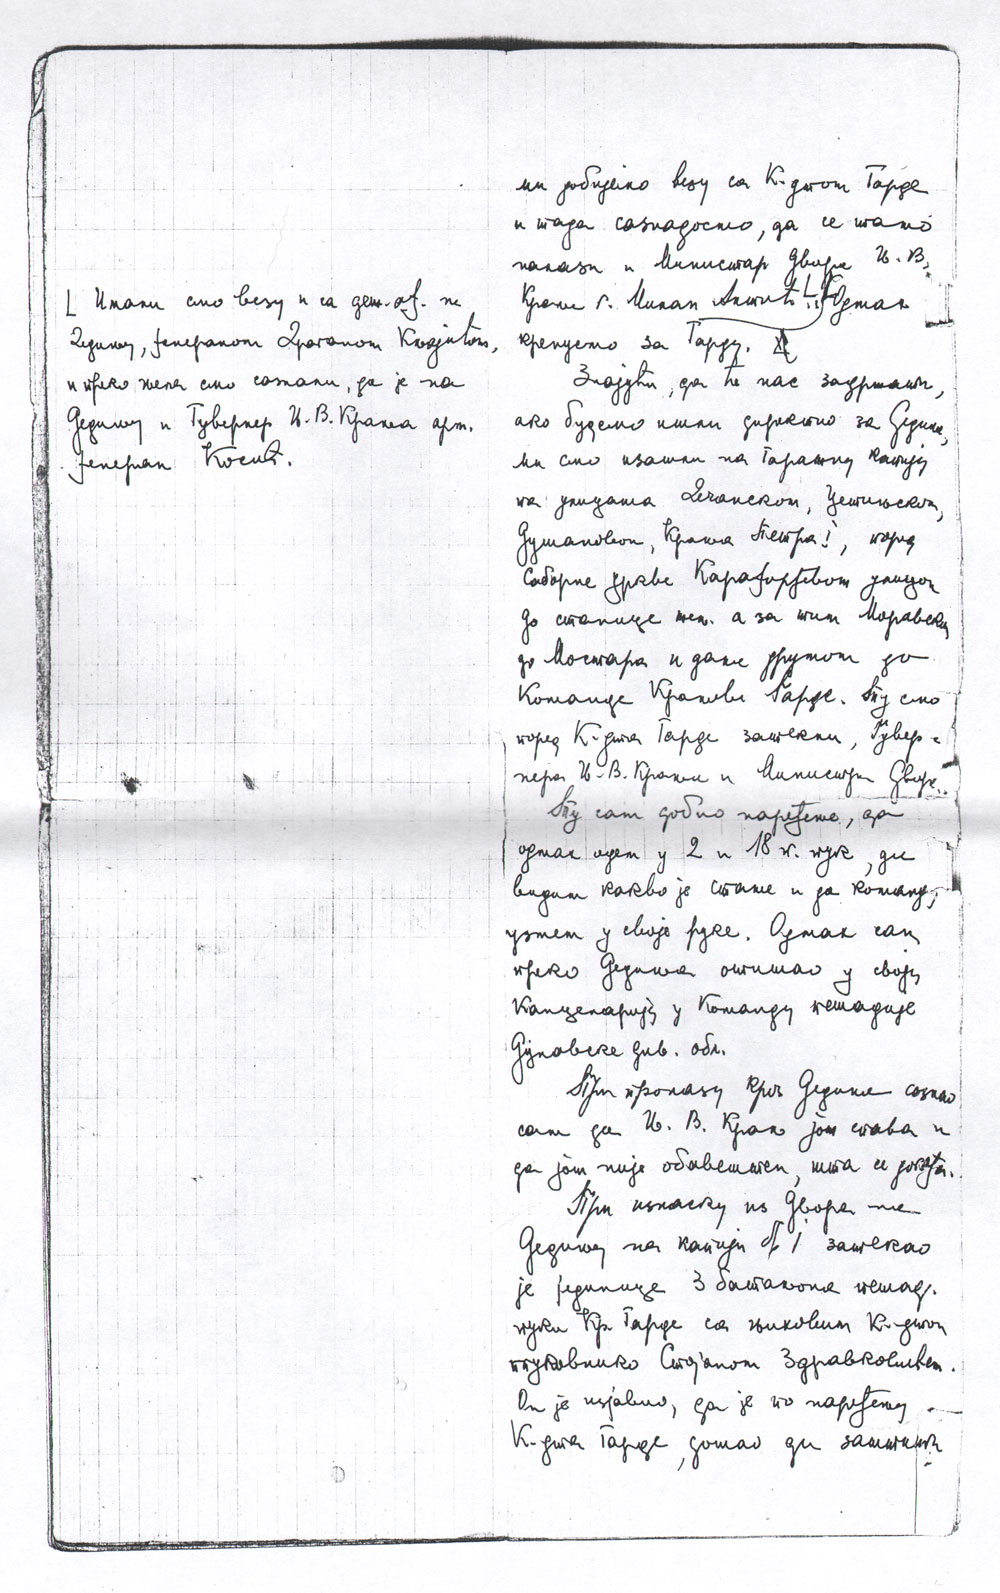 Имали смо везу и са деж. оф. на
Дедињу, ђенералом Драганом
и преко њега смо сазнали, да је на
Дедињу и Гувернер Њ.В. Краља арт.
ђенерал Косић.
ми добијемо везу са К-дтом Гарде
и тада сазнадосмо, да се тамо
налази и Министар Двора Њ.В.
Краља г. Милан Антић. Одмах
кренусмо за Гарду.
Знајући, да ће нас задржати,
ако будемо ишли директно за Дедиње,
ми смо изашли на Гаражну капију
па улицама Дечанском, Цетињском,
Душановом, Краља Петра I, поред
Саборне цркве Карађорђевом улицом
до станице жел. а за тим Моравском
до Мостара и даље друмом до
Команде Краљеве Гарде. Ту смо
поред К-дта Гарде затекли, Гувер-
нера Њ.В. Краља и Министра Двора.
Ту сам добио наређење, да
одмах одем у 2 и 18 п. пук, да
видим какво је стање и да команду
узмем у своје руке. Одмах сам
преко Дедиња отишао у своју
Канцеларију у Команду пешадије
Дунавске див. обл.
При пролазу кроз Дедиње сазнао
сам да Њ. В. Краљ још спава и
да још није обавештен, шта се догађа.
При изласку из Двора на
Дедињу на капији № 1 затекао
је јединице 3 батаљона пешад.
пука Кр. Гарде са њиховим К-дтом
пуковнико Стојаном Здравковићем.
Он је изјавио, да је по наређењу
К-дта Гарде, дошао да заштити